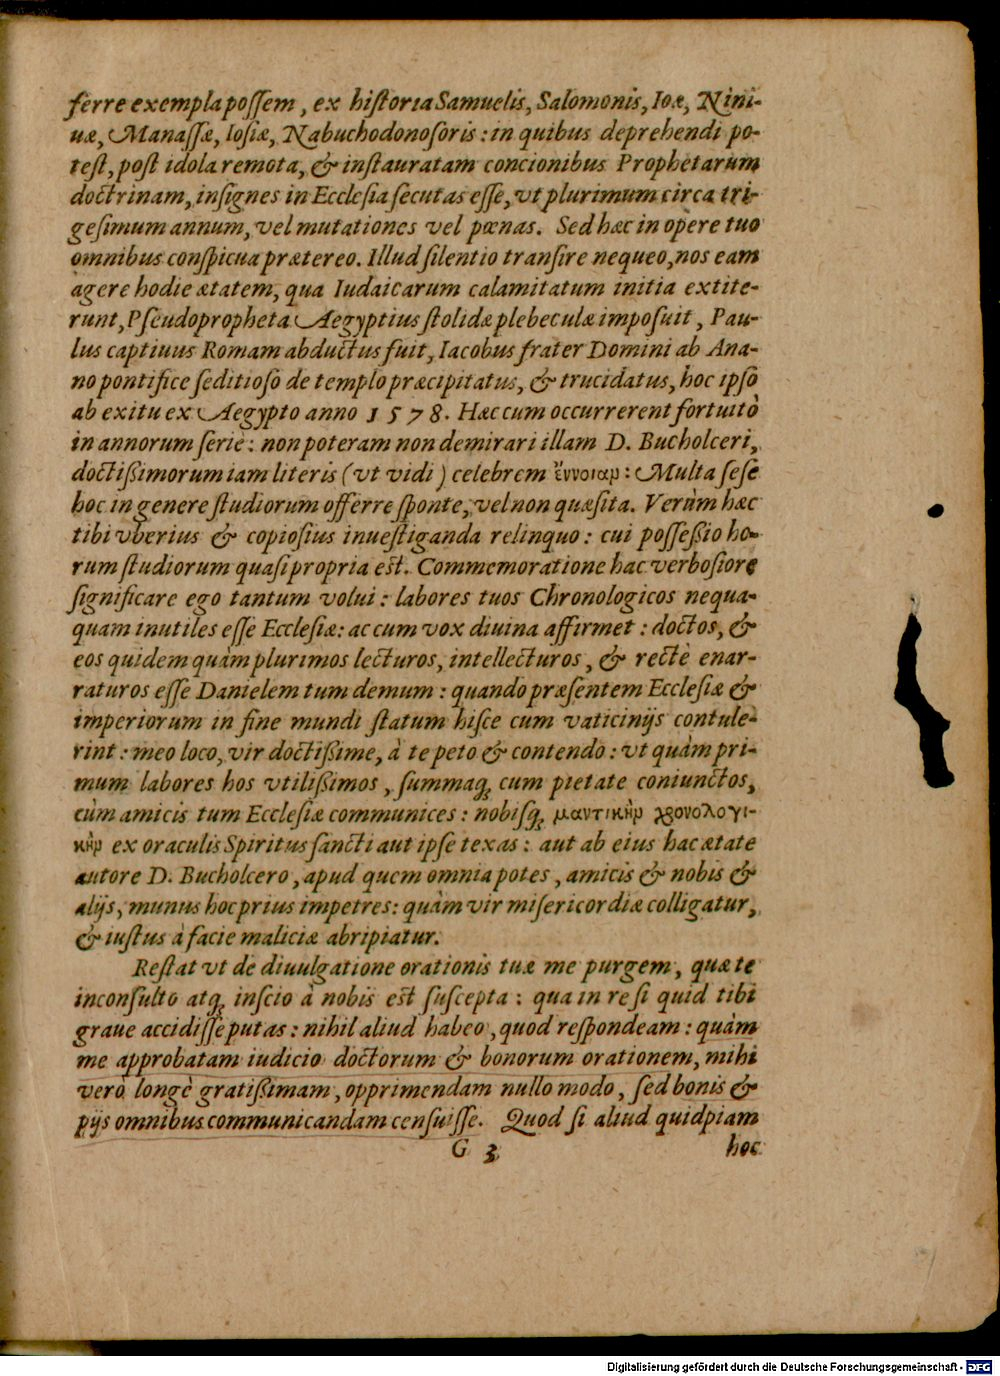 ferre exempla possem, ex historia Samuelis, Salomonis, Ioæ, Nini-
uæ, Manassæ, Iosiæ, Nabuchodonosoris: in quibus deprehendi po-
test, post idola remota, & instauratam concionibus Prophetarum
doctrinam, insignes in Ecclesia secutas esse, vt plurimum circa tri-
gesimum annum, vel mutationes vel pœnas. Sed hæc in opere tuo
omnibus conspicua prætereo. Illud silentio transire nequeo, nos eam
agere hodie ætatem, qua Iudaicarum calamitatum initia extite-
runt, Pseudopropheta Aegyptius stolidæ plebeculæ imposuit, Pau-
lus captiuus Romam abductus fuit, Iacobus frater Domini ab Ana-
no pontifice seditioso de templo præcipitatus, & trucidatus, hoc ipso
ab exitu ex Aegypto anno 1578. Hæc cum occurrerent fortuitò
in annorum serie: non poteram non demirari illam D. Bucholceri,
doctißimorum iam literis (vt vidi) celebrem ἔννοιαμ: Multa sese
hoc in genere studiorum offerre sponte, vel non quæsita. Verùm hæc
tibi vberius & copiosius inuestiganda relinquo: cui possessio ho-
rum studiorum quasi propria est. Commemoratione hac verbosiore
significare ego tantum volui: labores tuos Chronologicos nequa-
quam inutiles esse Ecclesiæ: ac cum vox diuina affirmet: doctos, &
eos quidem quàm plurimos lecturos, intellecturos, & rectè enar-
raturos esse Danielem tum demum: quando præsentem Ecclesiæ &
imperiorum in fine mundi statum hisce cum vaticinijs contule-
rint: meo loco, vir doctißime, à te peto & contendo: vt quàm pri-
mum labores hos vtilißimos, summaq; cum pietate coniunctos,
cùm amicis tum Ecclesiæ communices: nobisq; μαντικὴμ χρονολογι-
κὴμ ex oraculis Spiritus sancti aut ipse texas: aut ab eius hac ætate
autore D. Bucholcero, apud quem omnia potes, amicis & nobis &
alijs, munus hoc prius impetres: quàm vir misericordiæ colligatur,
& iustus à facie maliciæ abripiatur.
Restat vt de diuulgatione orationis tuæ me purgem, quæ te
inconsulto atq; inscio à nobis est suscepta: qua in re si quid tibi
graue accidisse putas: nihil aliud habeo, quod respondeam: quàm
me approbatam iudicio doctorum & bonorum orationem, mihi
verò longè gratißimam, opprimendam nullo modo, sed bonis &
pijs omnibus communicandam censuisse. Quod si aliud quidpiam
G 3 hoc
Digitalisierung gefördert durch die Deutsche Forschungsgemeinschaft - DFG